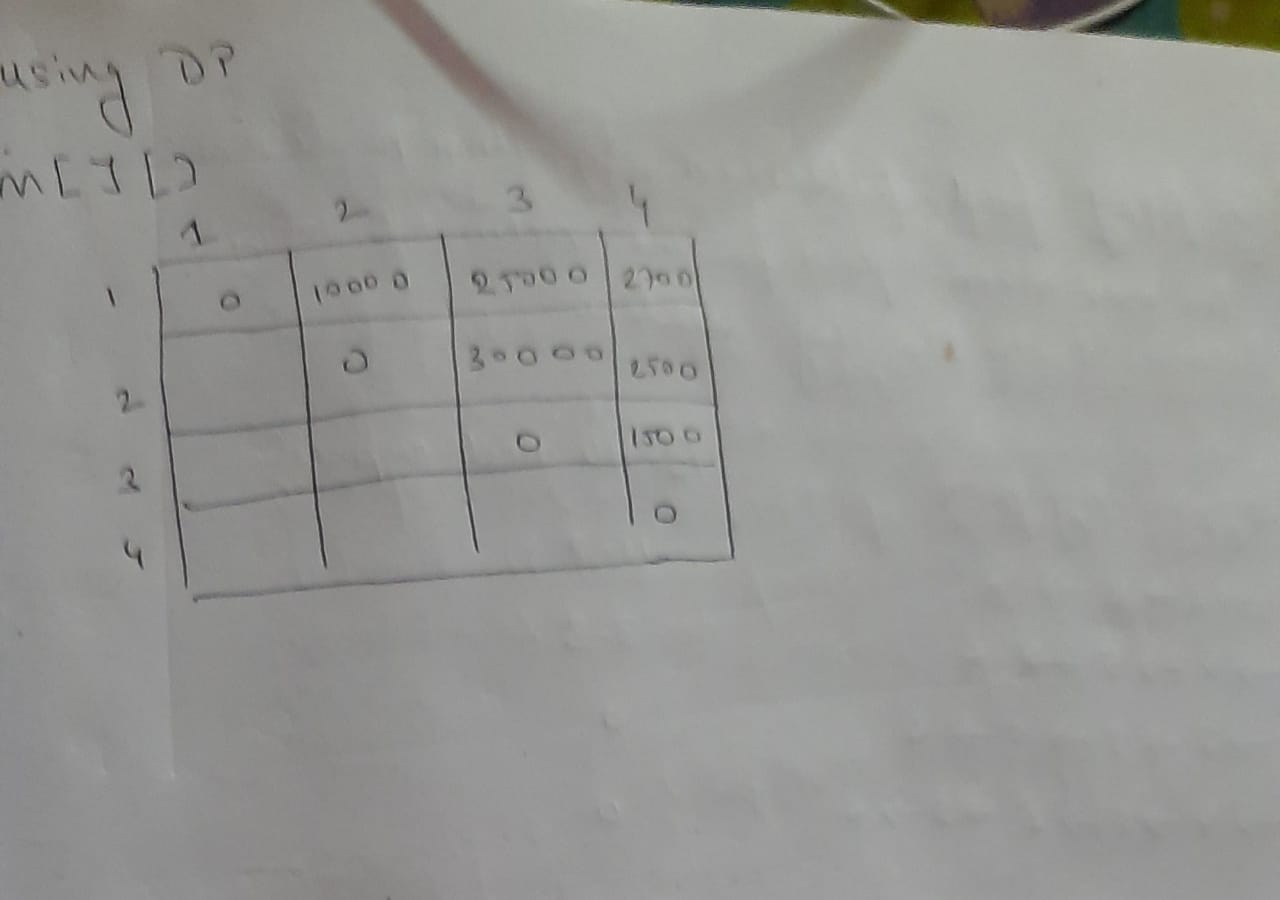 using DP
m[][]
1 2 3 4
1 0 10000 25000 2700
2 0 30000 2500
3 0 1500
4 0